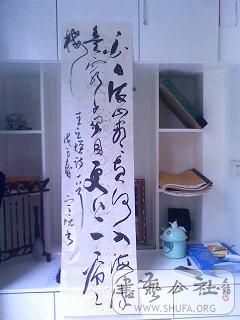 白日依山盡黄河入海流
欲窮千里目更上一層
樓 王之渙詩一首
書藝公社
WWW.SHUFA.ORG